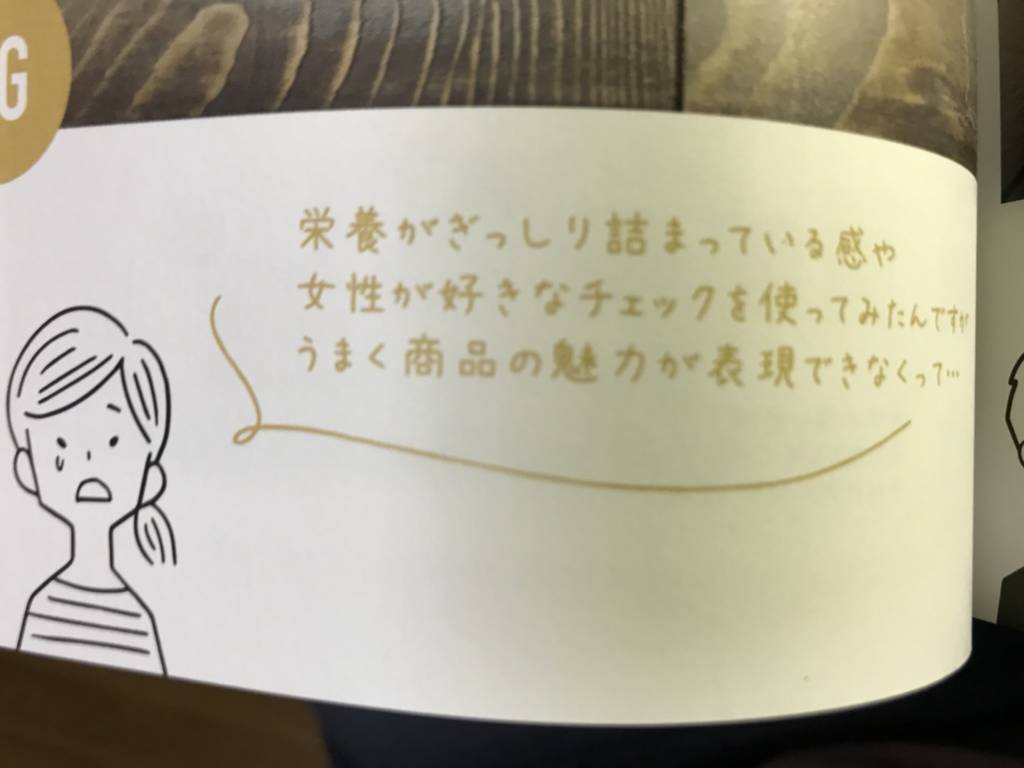 G
栄養がぎっしり詰まっている感や
女性が好きなチェックを使ってみたんですが
うまく商品の魅力が表現できなくって…